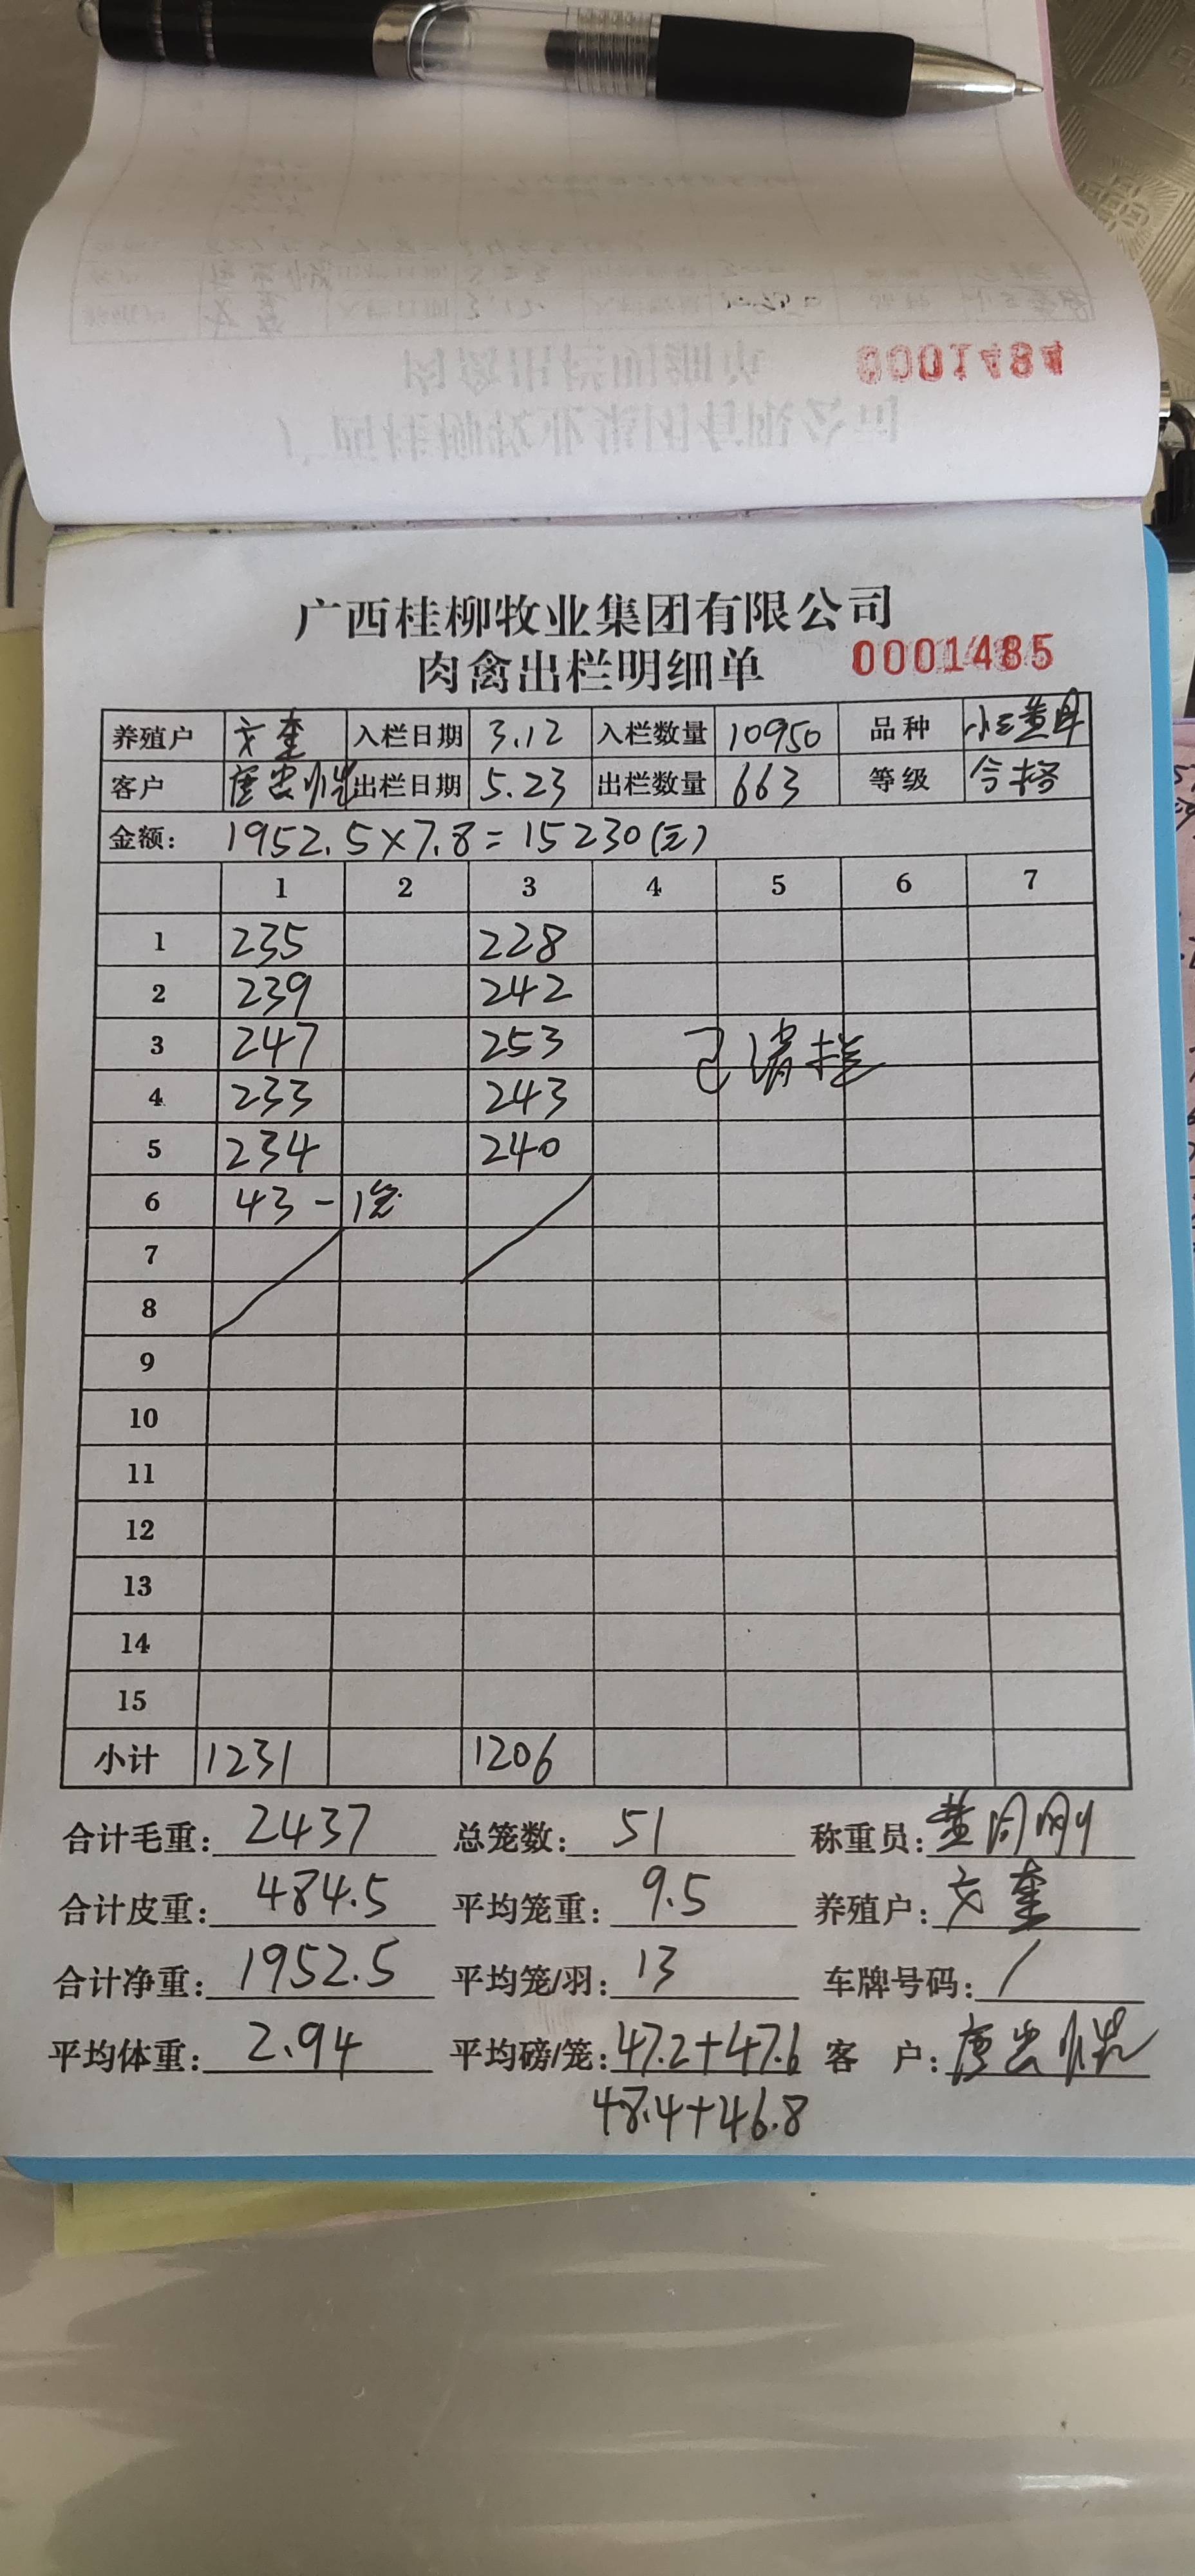 0001484
广西桂柳牧业集团有限公司
肉禽出栏明细单 0001485
养殖户 文奎 入栏日期 3.12 入栏数量 10950 品种
客户 出栏日期 5.23 出栏数量 663 等级 合格
金额: 1952.5×7.8=15230(元)
1 2 3 4 5 6 7
1 235 228
2 239 242
3 247 253
4 233 243
5 234 240
6 43-1笼
7
8
9
10
11
12
13
14
15
小计 1231 1206
合计毛重: 2437 总笼数: 51 称重员:
合计皮重: 484.5 平均笼重: 9.5 养殖户: 文奎
合计净重: 1952.5 平均笼/羽: 13 车牌号码: /
平均体重: 2.94 平均磅/笼: 47.2+47.6 客 户:
48.4+46.8